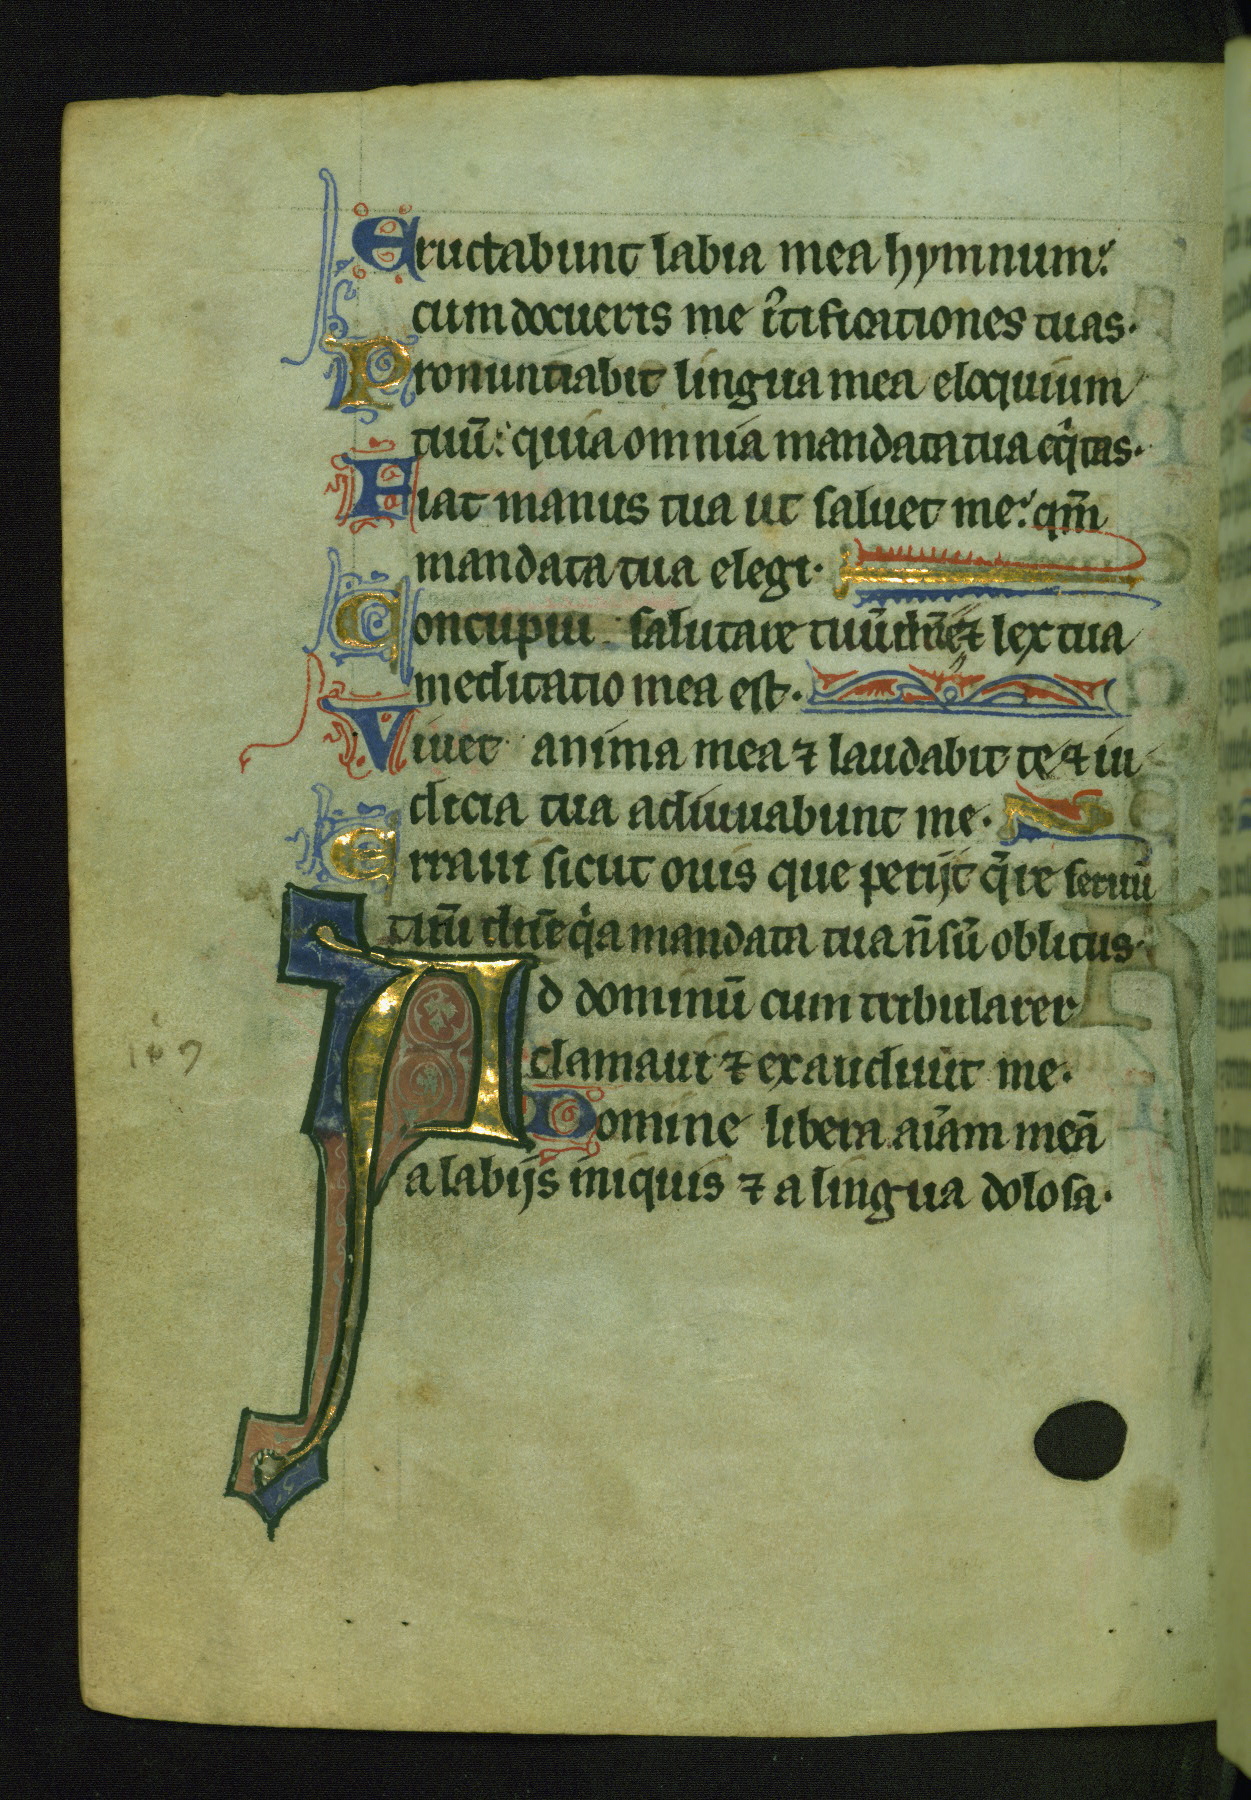 Eructabunt labia mea hymnum:
cum docueris me iʳtificationes tuas.
Pronuntiabit lingua mea eloquium
tuū: quia omnia mandata tua eq̇tas.
Fiat manus tua ut saluet me: qm̄
mandata tua elegi.
Concupiui salutare tuū dn̄e ⁊ lex tua
meditatio mea est.
Viuet anima mea ⁊ laudabit te ⁊ iu
dicia tua adiuuabunt me.
Erraui sicut ouis que perijt q̄re seruū
tuū dn̄e q̇a mandata tua n̄ sū oblitus.
Ad dominū cum tribularer
clamaui ⁊ exaudiuit me.
Domine libera aīam meā
a labijs iniquis ⁊ a lingua dolosa.